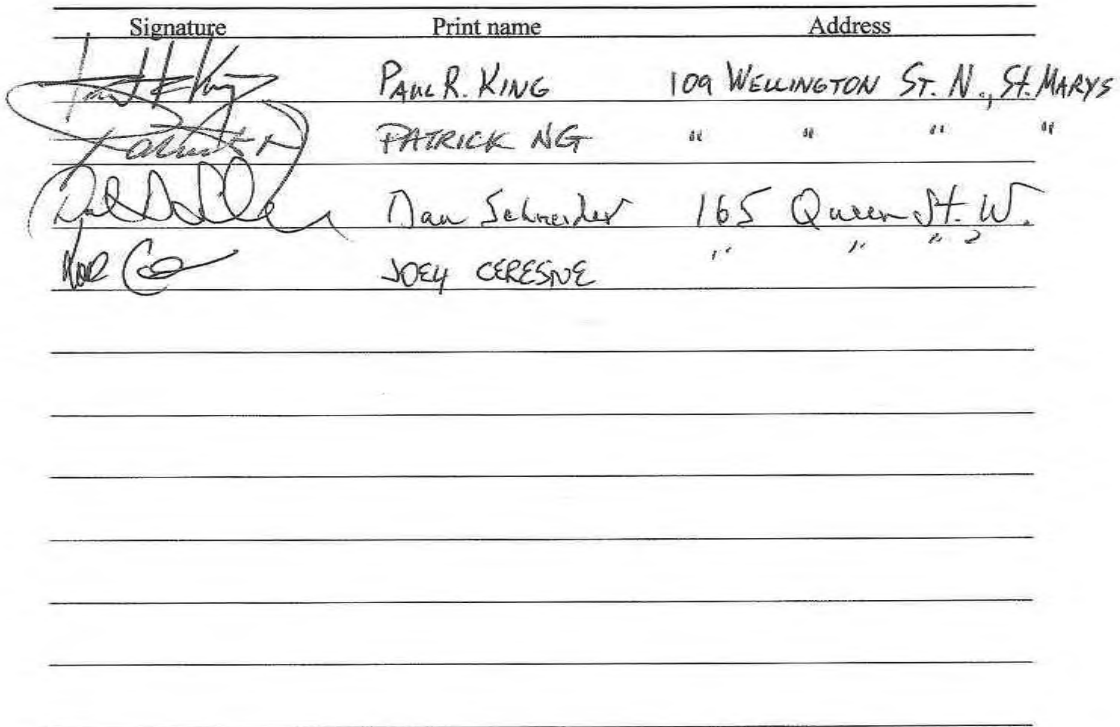 Signature Print name Address
Paul R King PAUL R. KING 109 WELLINGTON ST. N., St. MARYS
Patrick N PATRICK NG " " " "
Dan Schneider 165 Queen St. W.
JOEY CERESNE " " " "